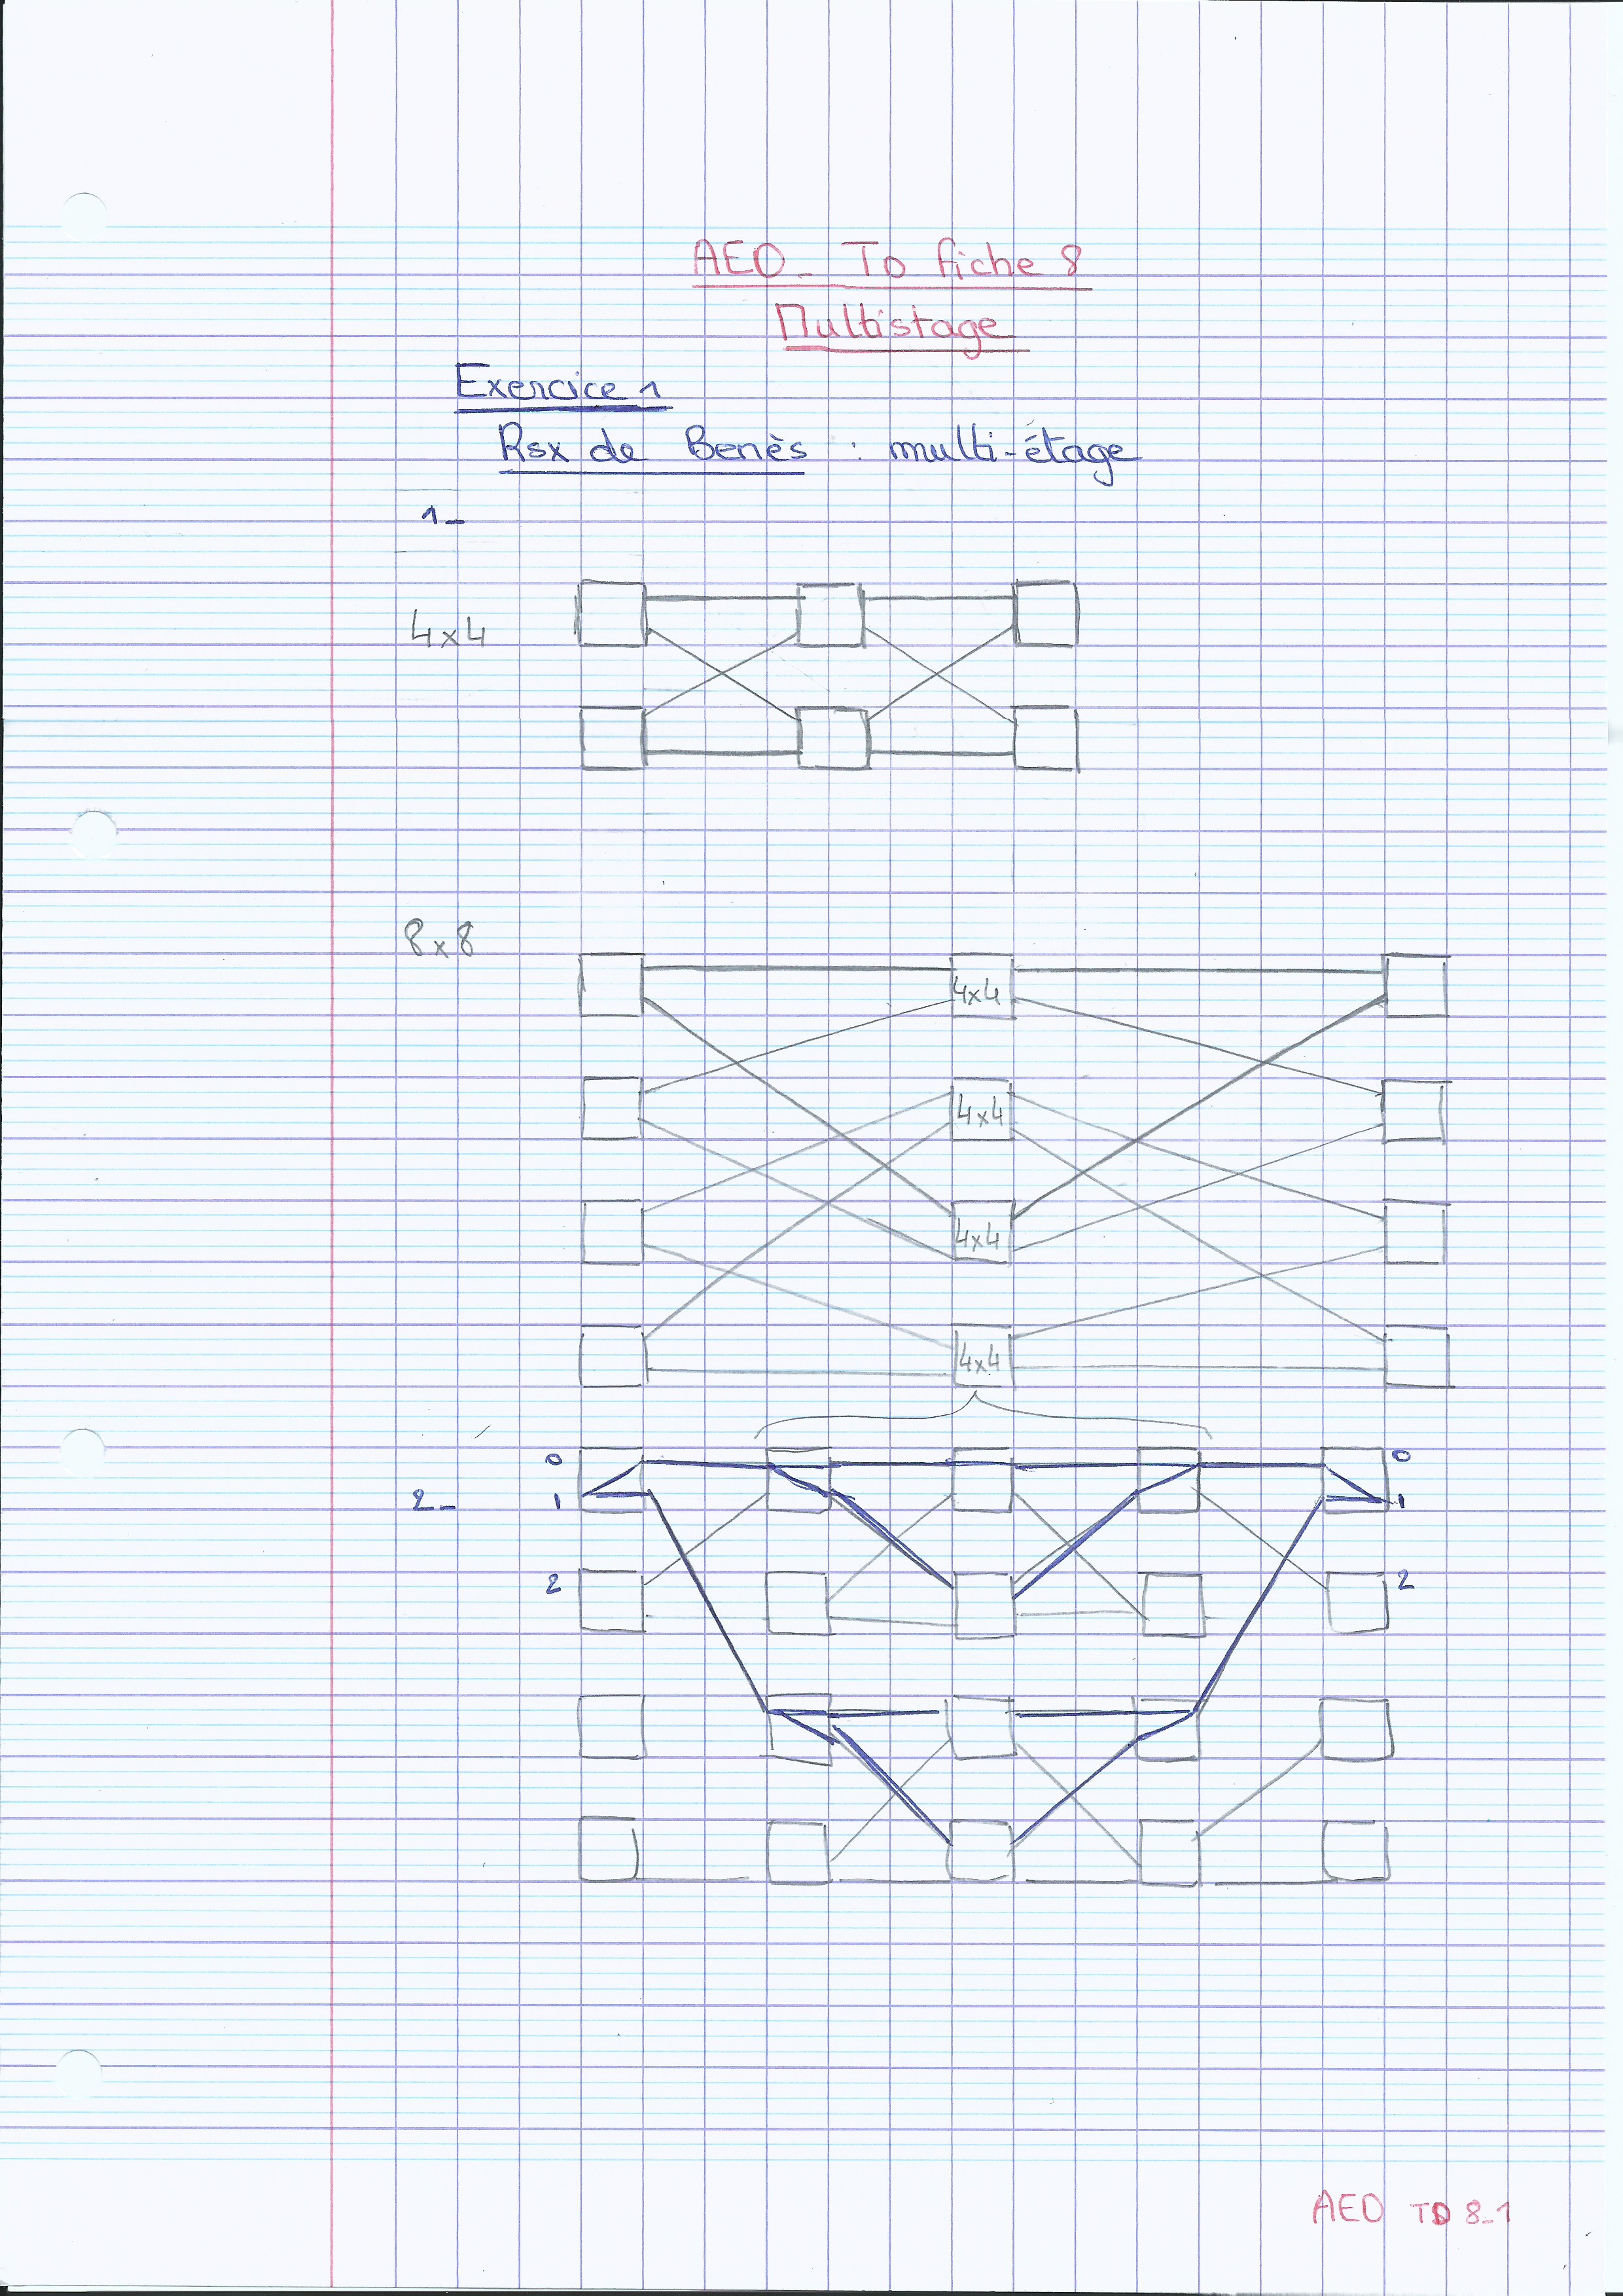 AEO_ TD fiche 8
Multistage
Exercice 1
Rsx de Benès : multi-étage
1_
4x4
8x8
4x4
4x4
4x4
4x4
0 0
2_ 1 1
2 2
AEO TD 8_1